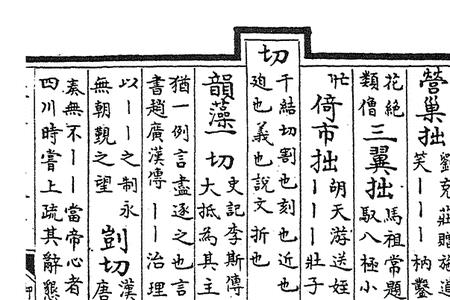 營巢拙
劉克莊贈施道
笑丨丨丨枘鑿
花絕
類僧
三翼拙
馬祖常題
馭八極小
忙
倚市拙
胡天游送姪
丨丨丨壯子
切
千結切割也刻也近也
迫也義也說文折也
韻藻一切
史記李斯傳
大抵為其主
猶一例言盡逐之也言
書趙廣漢傳丨丨治理
以丨丨之制永
無朝覲之望
剴切
漢
唐
秦無不丨丨當帝心者
四川時嘗上疏其辭懇